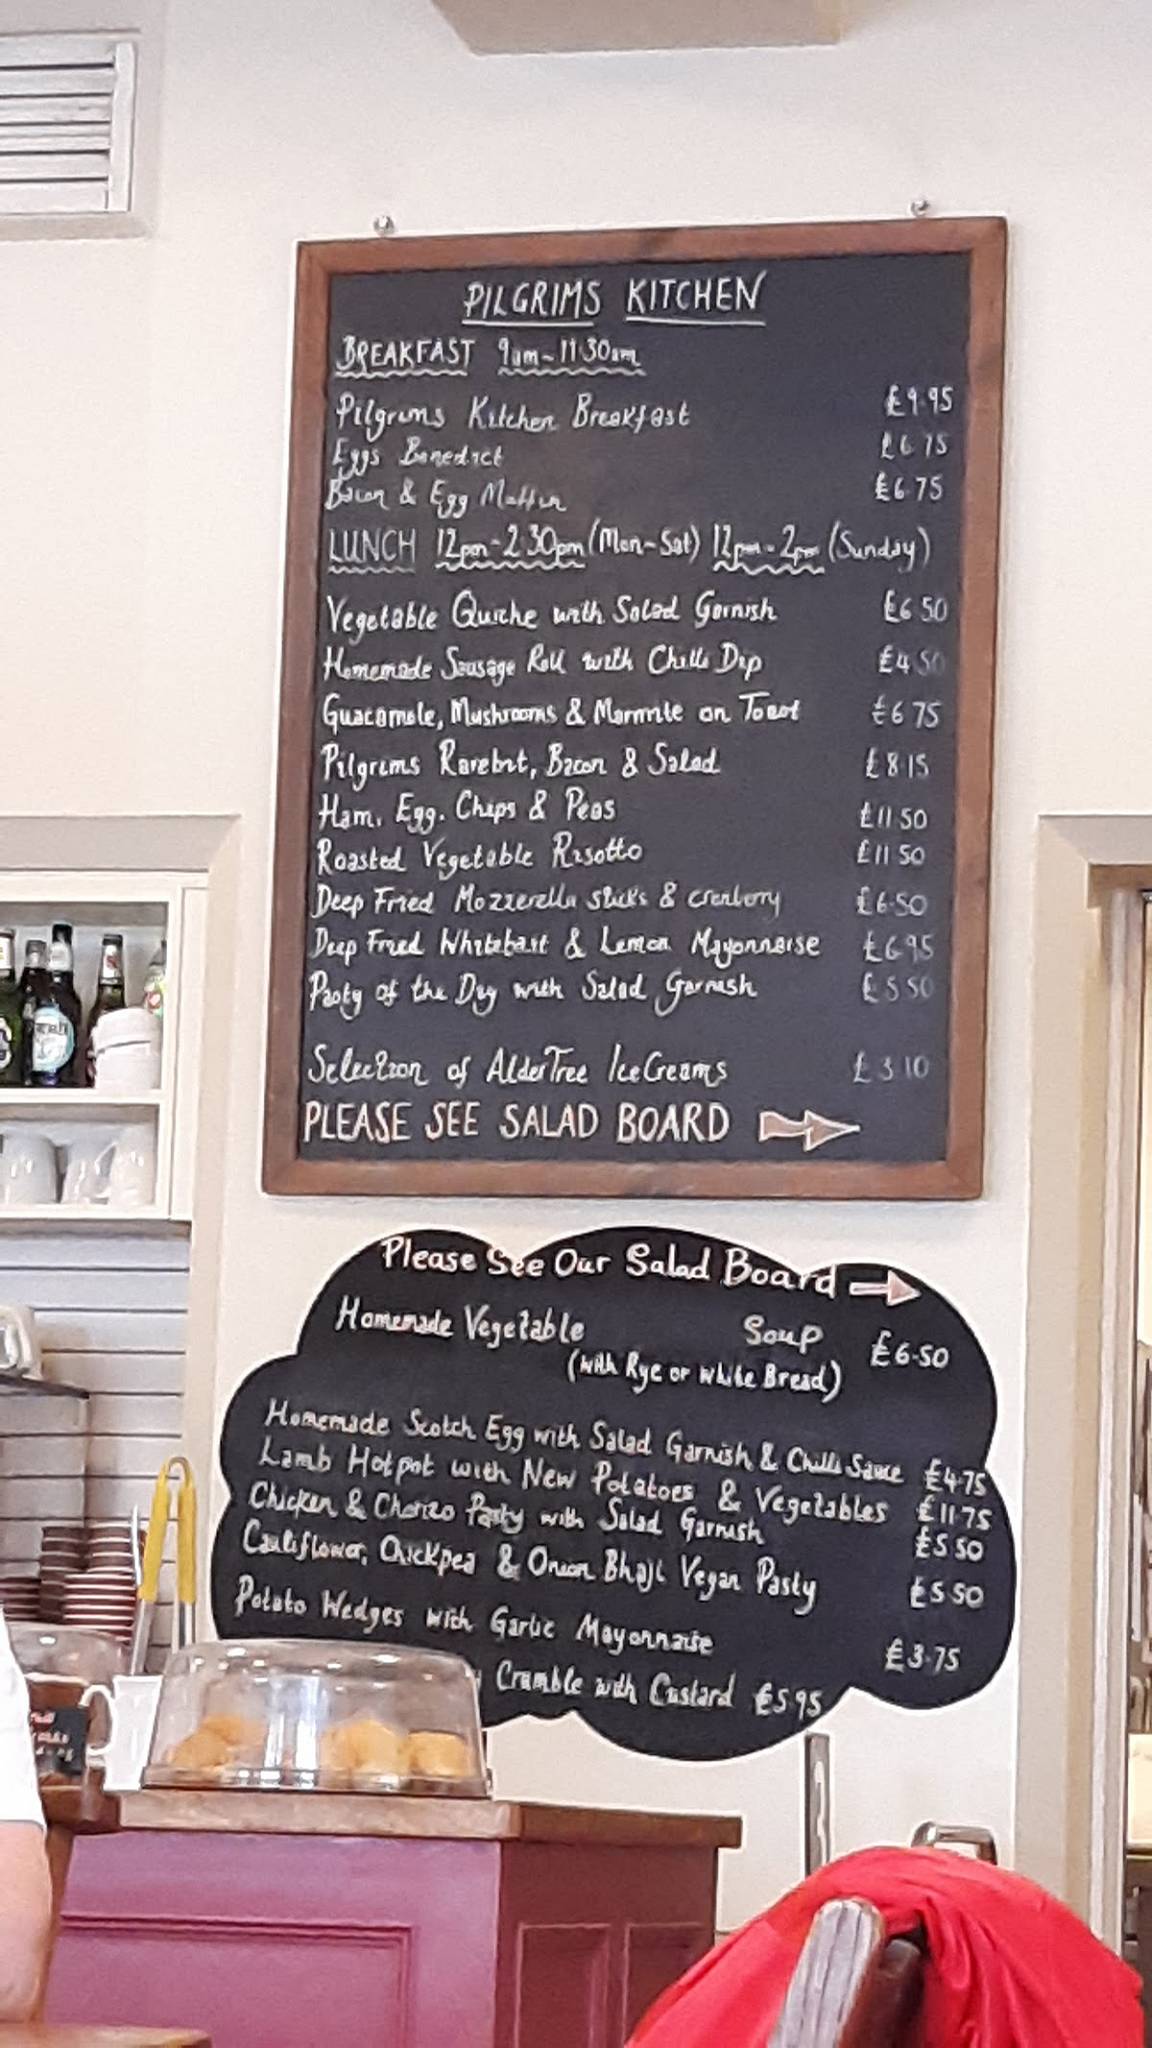 PILGRIMS KITCHEN
BREAKFAST 9am-11·30am
Pilgrims Kitchen Breakfast £9·95
Eggs Benedict £6 75
Bacon & Egg Muffin £6·75
LUNCH 12pm-2·30pm (Mon-Sat) 12pm-2pm (Sunday)
Vegetable Quiche with Salad Garnish £6 50
Homemade Sausage Roll with Chilli Dip £4 50
Guacamole, Mushrooms & Marmite on Toast £6 75
Pilgrims Rarebit, Bacon & Salad £8·15
Ham, Egg, Chips & Peas £11 50
Roasted Vegetable Risotto £11 50
Deep Fried Mozzerella sticks & cranberry £6·50
Deep Fried Whitebait & Lemon Mayonnaise £6 95
Pasty of the Day with Salad Garnish £5 50
Selection of AlderTree IceCreams £3 10
PLEASE SEE SALAD BOARD
Please See Our Salad Board
Homemade Vegetable Soup £6·50
(with Rye or white Bread)
Homemade Scotch Egg with Salad Garnish & Chilli Sauce £4·75
Lamb Hotpot with New Potatoes & Vegetables £11·75
Chicken & Chorizo Pasty with Salad Garnish £5 50
Cauliflower, Chickpea & Onion Bhaji Vegan Pasty £5·50
Potato Wedges with Garlic Mayonnaise £3·75
Crumble with Custard £5 95